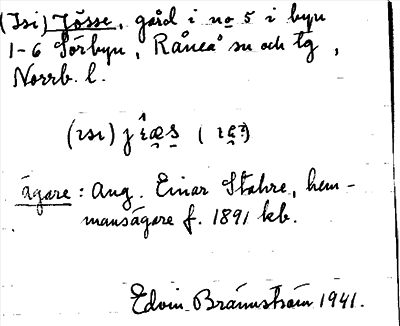 (Isi) Jösse, gård i no 5 i byn
1-6 Sörbyn, Råneå sn och tg,
Norrb. l.
ägare: Aug. Einar Stahre, hem-
mansägare f. 1891 kb.
Edvin Brännström 1941.